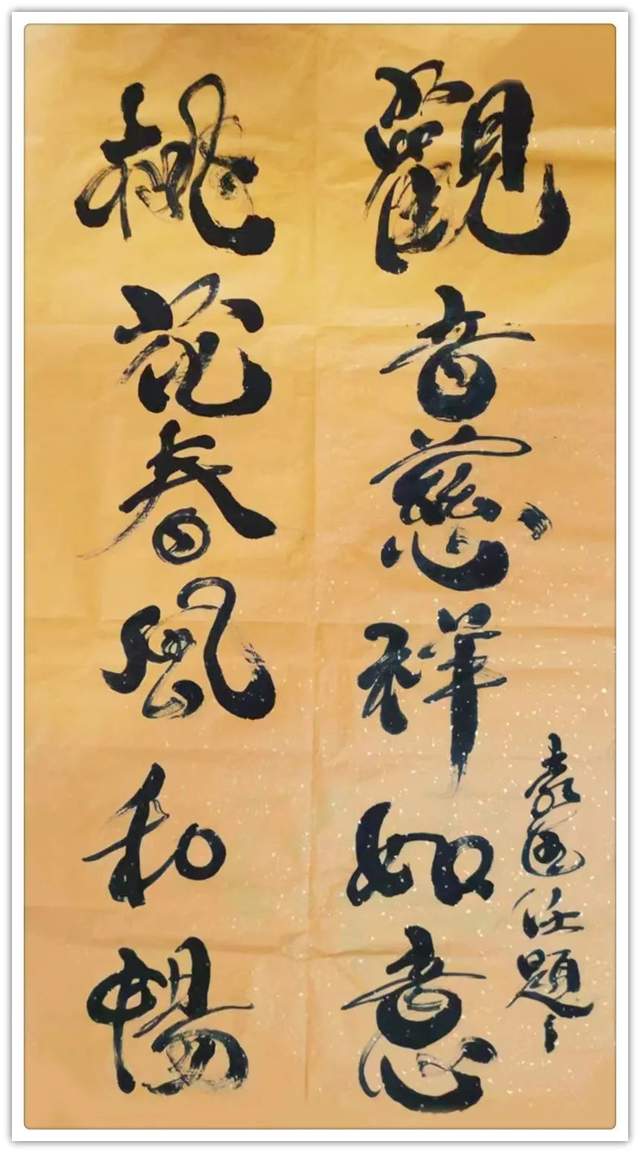 觀音慈祥如意
桃花春風和暢
袁國任題